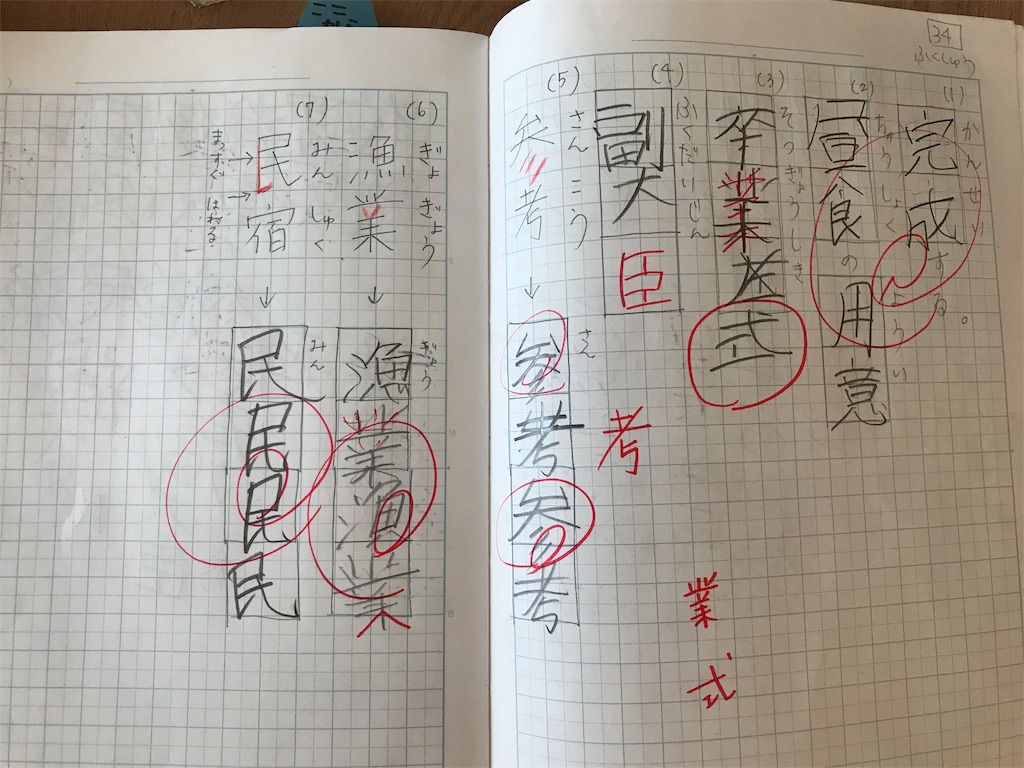 34
ふくしゅう
(1)
かんせい
完成する。
(2)
ちゅうしょく ようい
昼食の用意
(3)
そつぎょうしき
卒業
式
業
式
(4)
ふくだいじん
副大臣
考
(5)
さんこう
考
↓
さん
参考
(6)
ぎょぎょう
漁業
↓
ぎょう
漁業漁業
(7)
みんしゅく
民宿
まっすぐ→
はねる→
↓
みん
民民民民